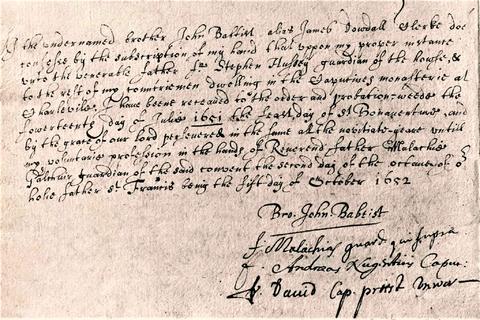 I the undernamed brother John Babtist alias James Dowdall Clerke doe
confesse by the subscription of my hand that uppon my proper instance
unto the venerable father Stephen Hussey guardian of the house, &
to the rest of my countriemen dwelling in the Capucines monasterie at
Charleville, I have beene receaved to the order and probation-weede the
fowerteenth day of Julie 1651 the feast day of St Bonaventure, and
by the grace of our Lord persevered in the same all the novitiate-yeare untill
my voluntarie profession in the hands of Reverend father Malachie
guardian of the said convent the second day of the octave of o
holie father St Francis being the fift day of October 1652
Bro. John Babtist
f. Malachias guard qui supra
f. Andreas Capu:
f. David Cap.